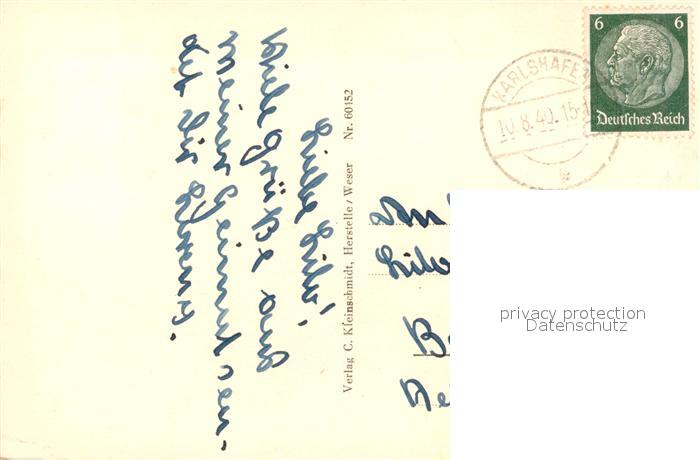 Liebe Lilo!
Viele Grüße aus
meiner Heimat sen-
det Dir
Verlag C. Kleinschmidt, Herstelle / Weser Nr. 60152
6 6
Deutsches Reich
KARLSHAFEN
10.8.40.15-
An
Lilo
privacy protection
Datenschutz